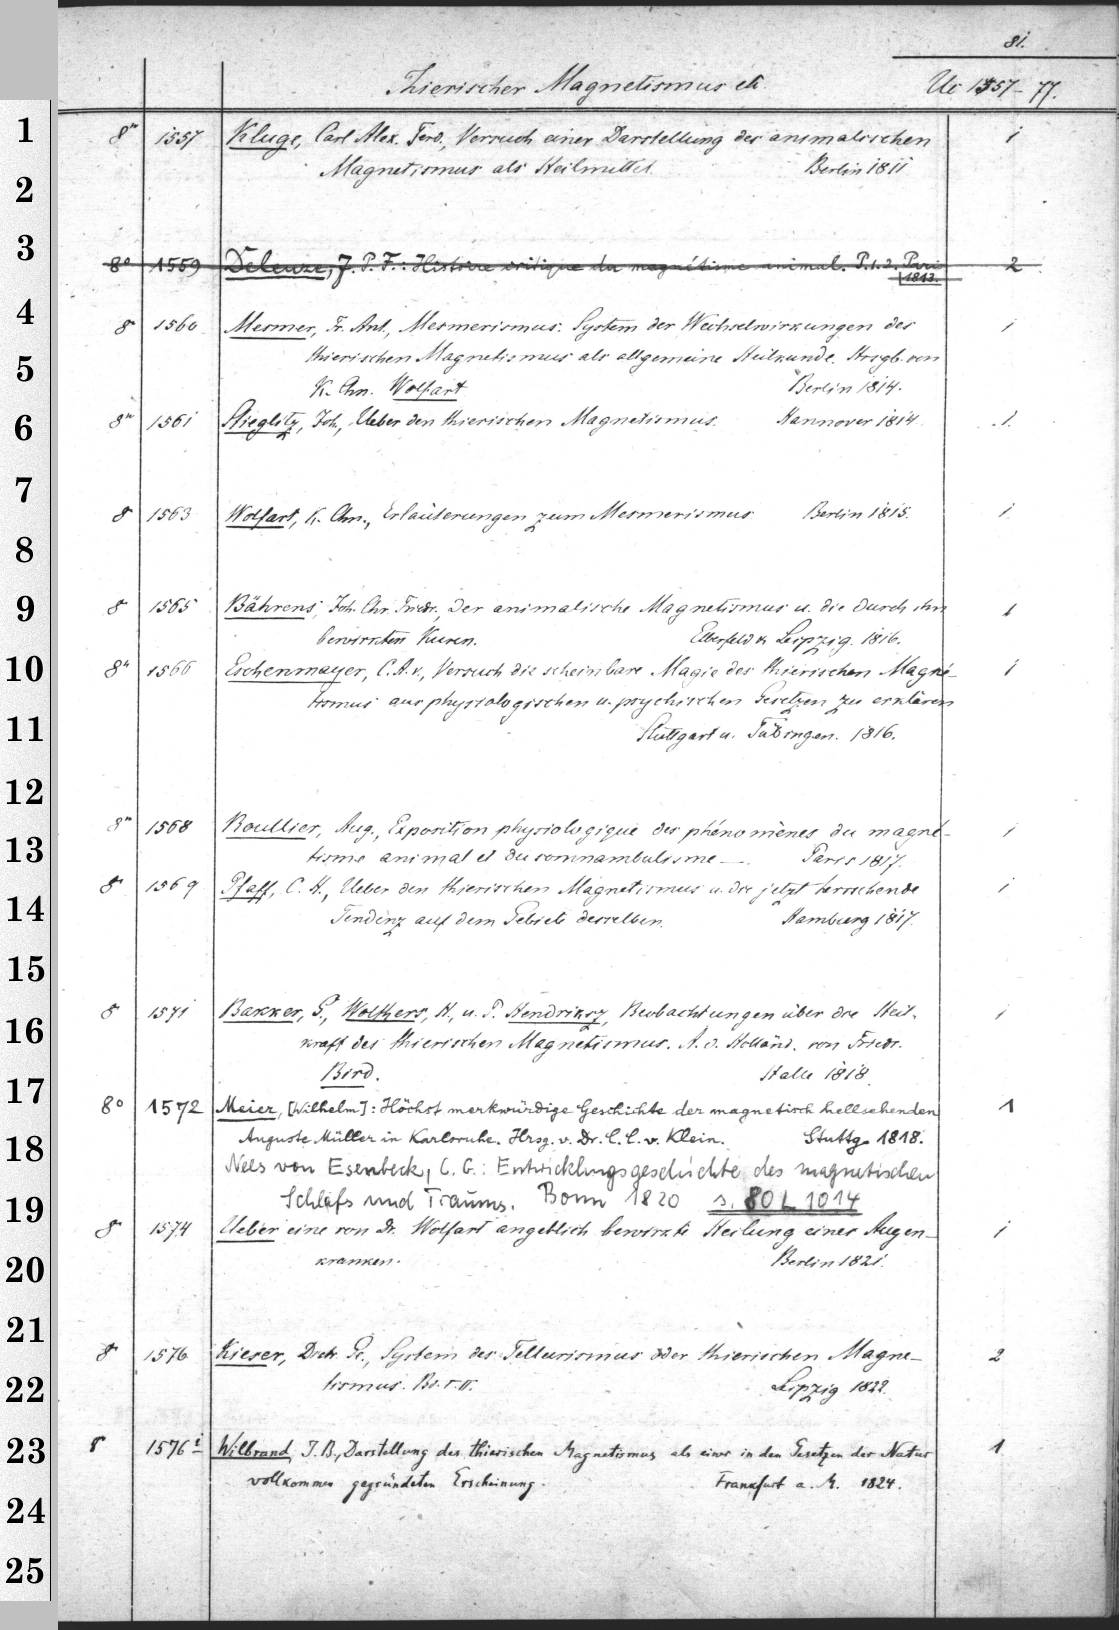 81.
Thierischer Magnetismus etc Uc 1557-77.
1
8° 1557 Kluge, Carl Alex. Ferd., Versuch einer Darstellung des animalischen 1
Magnetismus als Heilmittel. Berlin 1811
2
3
8° 1559 Deleuze, J. P. F.: Histoire critique du magnétisme animal. P. 1. 2. Paris 2
1813.
4
8 1560 Mesmer, Fr. Ant., Mesmerismus: System der Wechselwirkungen des 1
5
thierischen Magnetismus als allgemeine Heilkunde. Hrsgb. von
K. Chn. Wolfart Berlin 1814.
6
8° 1561 Stieglitz, Joh., Ueber den thierischen Magnetismus. Hannover 1814 1.
7
8 1563 Wolfart, K. Chn., Erläuterungen zum Mesmerismus Berlin 1815. 1
8
9
8 1565 Bährens, Joh. Chr. Friedr., Der animalische Magnetismus u. die durch ihn 1
bewirkten Kuren. Elberfeld u. Leipzig. 1816.
10
8° 1566 Eschenmayer, C. A. v., Versuch die scheinbare Magie des thierischen Magne- 1
tismus aus physiologischen u. psychischen Gesetzen zu erklären
11
Stuttgart u. Tübingen. 1816.
12
8° 1568 Roullier, Aug., Exposition physiologique des phénomènes du magné- 1
13
tisme animal et du somnambulisme —. Paris 1817.
8 1569 Pfaff, C. H., Ueber den thierischen Magnetismus u. die jetzt herrschende 1
14
Tendenz auf dem Gebiete desselben. Hamburg 1817.
15
8 1571 Bakker, G., Wolthers, H., u. P. Hendriksz, Beobachtungen über die Heil- 1
16
kraft des thierischen Magnetismus. A. d. Holländ. von Friedr.
Bird. Halle 1818.
17
8° 1572 Meier, [Wilhelm]: Höchst merkwürdige Geschichte der magnetisch hellsehenden 1
18
Auguste Müller in Karlsruhe. Hrsg. v. Dr. C. C. v. Klein. Stuttg. 1818.
Nees von Esenbeck, C. G.: Entwicklungsgeschichte des magnetischen
19
Schlafs und Traums. Bonn 1820 s. 80 L 1014
8 1574 Ueber eine von Dr. Wolfart angeblich bewirkte Heilung einer Augen- 1
20
kranken. Berlin 1821.
21
8 1576 Kieser, Dietr. G., System des Tellurismus oder thierischen Magne- 2
22
tismus. Bd. I. II. Leipzig 1822.
23
8 1576 i Wilbrand, J. B., Darstellung des thierischen Magnetismus als einer in den Gesetzen der Natur 1
vollkommen gegründeten Erscheinung. Frankfurt a. M. 1824.
24
25